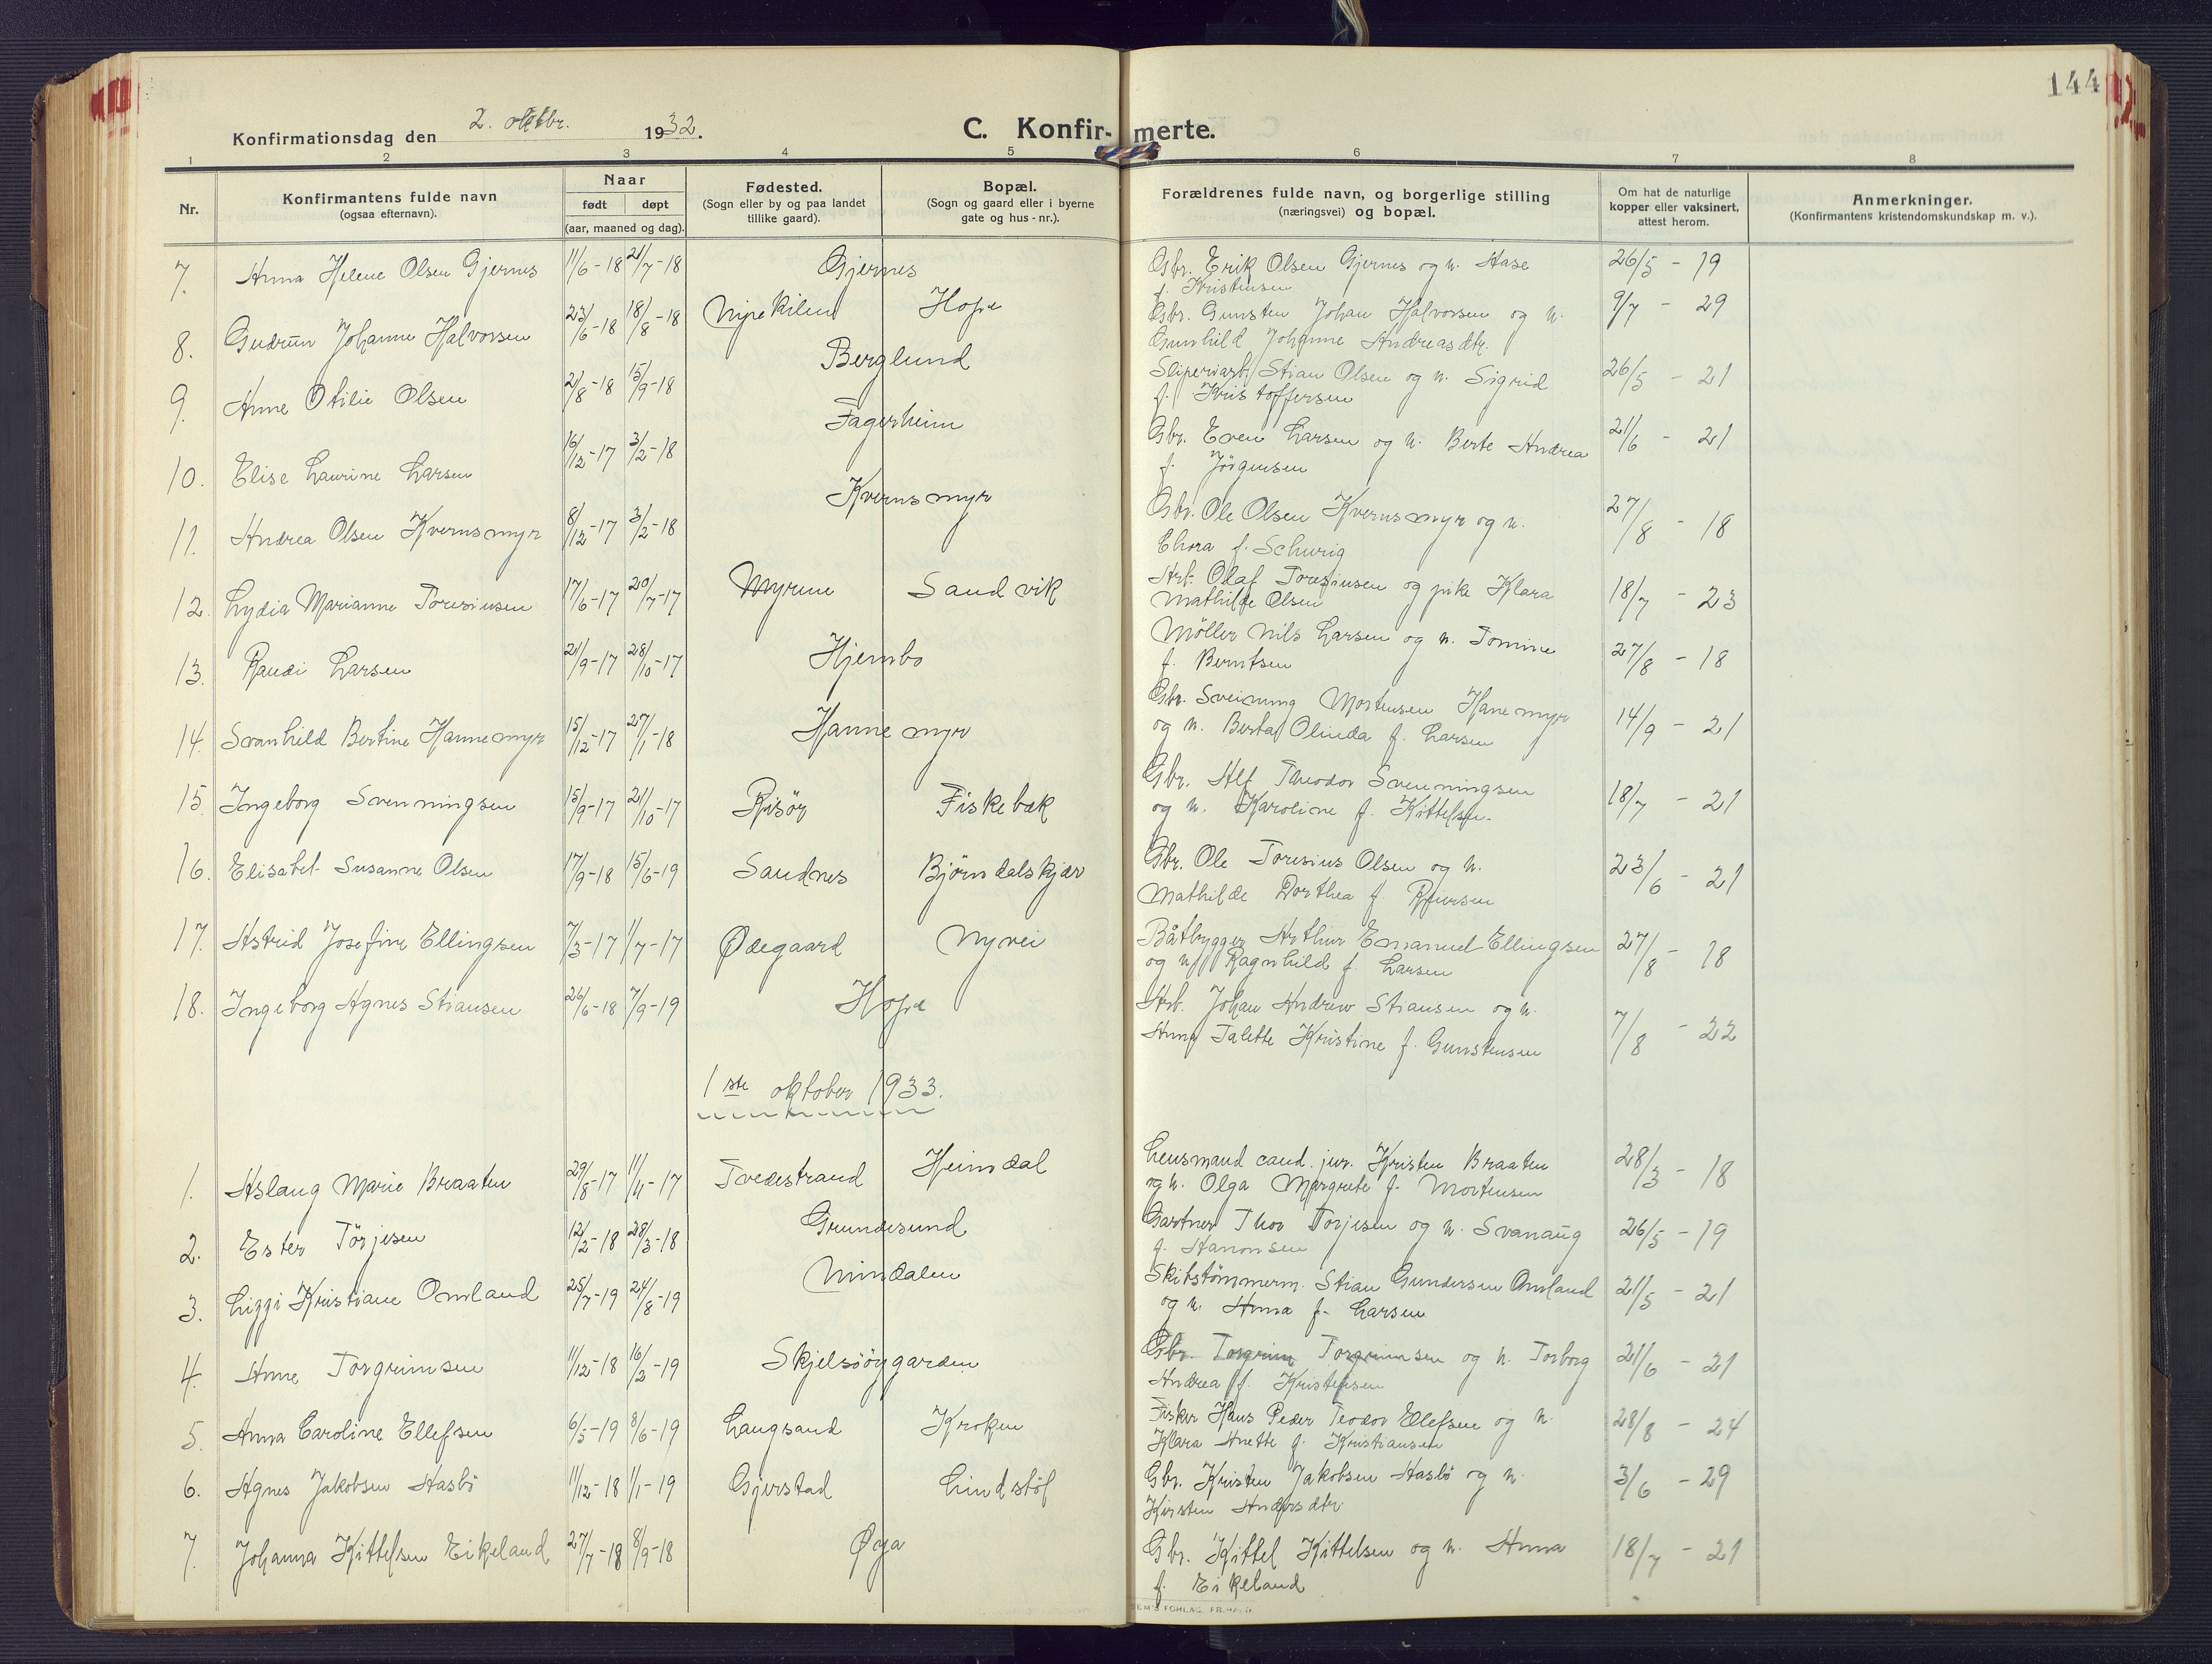 144
Konfirmationsdag den 2. oktbr. 1932.
C. Konfirmerte.
1 2 3 4 5 6 7 8
Nr.
Konfirmantens fulde navn
(ogsaa efternavn).
Naar
født døpt
(aar, maaned og dag).
Fødested.
(Sogn eller by og paa landet
tillike gaard).
Bopæl.
(Sogn og gaard eller i byerne
gate og hus-nr.).
Forældrenes fulde navn, og borgerlige stilling
(næringsvei) og bopæl.
Om hat de naturlige
kopper eller vaksinert,
attest herom.
Anmerkninger.
(Konfirmantens kristendomskundskap m. v.).
7. Anna Helene Olsen Gjernes 11/6-18 21/7-18 Gjernes Gbr. Erik Olsen Gjernes og h. Aase 26/5 - 19
f. Kristensen
8. Gudrun Johanne Halvorsen 23/6-18 18/8-18 Nipekilen Hope Gbr. Gunsten Johan Halvorsen og h. 9/7 - 29
Gunhild Johanne Andreasdtr.
9. Anne Otilie Olsen 21/8-18 15/9-18 Berglund Sliperiarb. Stian Olsen og h. Sigrid 26/5 - 21
f. Kristoffersen
10. Elise Laurine Larsen 16/12-17 3/2-18 Fagerheim Gbr. Even Larsen og h. Berte Andrea 21/6 - 21
f. Jörgensen
11. Andrea Olsen Kvernsmyr 8/12-17 3/2-18 Kvernsmyr Gbr. Ole Olsen Kvernsmyr og h. 27/8 - 18
Thora f. Schurig
12. Lydia Marianne Toresinsen 17/6-17 20/7-17 Myrene Sandvik Arb. Olaf Toresinsen og pike Klara 18/7 - 23
Mathilde Olsen
13. Randi Larsen 21/9-17 28/10-17 Hjembo Møller Nils Larsen og h. Tomine 27/8 - 18
f. Berntsen
14. Svanhild Bertine Hannemyr 15/12-17 27/1-18 Hannemyr Gbr. Sveinung Mortensen Hanemyr 14/9 - 21
og h. Berta Olinda f. Larsen
15. Ingeborg Svenningsen 15/9-17 21/10-17 Risör Fiskebæk Gbr. Alf Theodor Svenningsen 18/7 - 21
og h. Karoline f. Kittelsen.
16. Elisabet Susanne Olsen 17/9-18 15/6-19 Sandnes Björndalskjær Gbr. Ole Toresius Olsen og h. 23/6 - 21
Mathilde Dorthea f. Reiersen
17. Astrid Josefine Ellingsen 7/3-17 1/7-17 Ødegaard Nyvei Båtbygger Arthur Emanuel Ellingsen 27/8 - 18
og h. Ragnhild f. Larsen
18. Ingeborg Agnes Stiansen 26/6-18 7/9-19 Hope Arb. Johan Andrew Stiansen og h. 7/8 - 22
Anna Talette Kristine f. Gunstensen
1ste oktober 1933.
1. Aslaug Marie Braaten 29/8-17 11/11-17 Tvedestrand Heimdal Lensmand cand. jur. Kristen Braaten 28/3 - 18
og h. Olga Margrete f. Mortensen
2. Ester Törjesen 12/2-18 28/3-18 Grundesund Gartner Thor Torjesen og h. Svanaug 26/5 - 19
f. Hanonsen
3. Liggi Kristiane Omland 25/7-19 24/8-19 Nimdalen Skibstömmerm. Stian Gundersen Omland 21/5 - 21
og h. Anna f. Larsen
4. Anne Torgrimsen 11/12-18 16/2-19 Skjelsöygarden Gbr. Torgrim Torgrimsen og h. Torborg 21/6 - 21
Andrea f. Kristensen
5. Anna Caroline Ellefsen 6/5-19 8/6-19 Langsand Kroken Fisker Hans Peder Teodor Ellefsen og h. 28/8 - 24
Klara Anette f. Kristiansen
6. Agnes Jakobsen Aasbö 11/12-18 1/1-19 Gjerstad Lindstöl Gbr. Kristen Jakobsen Aasbö og h. 3/6 - 29
Kirsten Andersdtr.
7. Johanna Kittelsen Eikeland 27/7-18 8/9-18 Øya Gbr. Kittel Kittelsen og h. Anna 18/7 - 21
f. Eikeland
SEM'S FORLAG, FR.HALD.